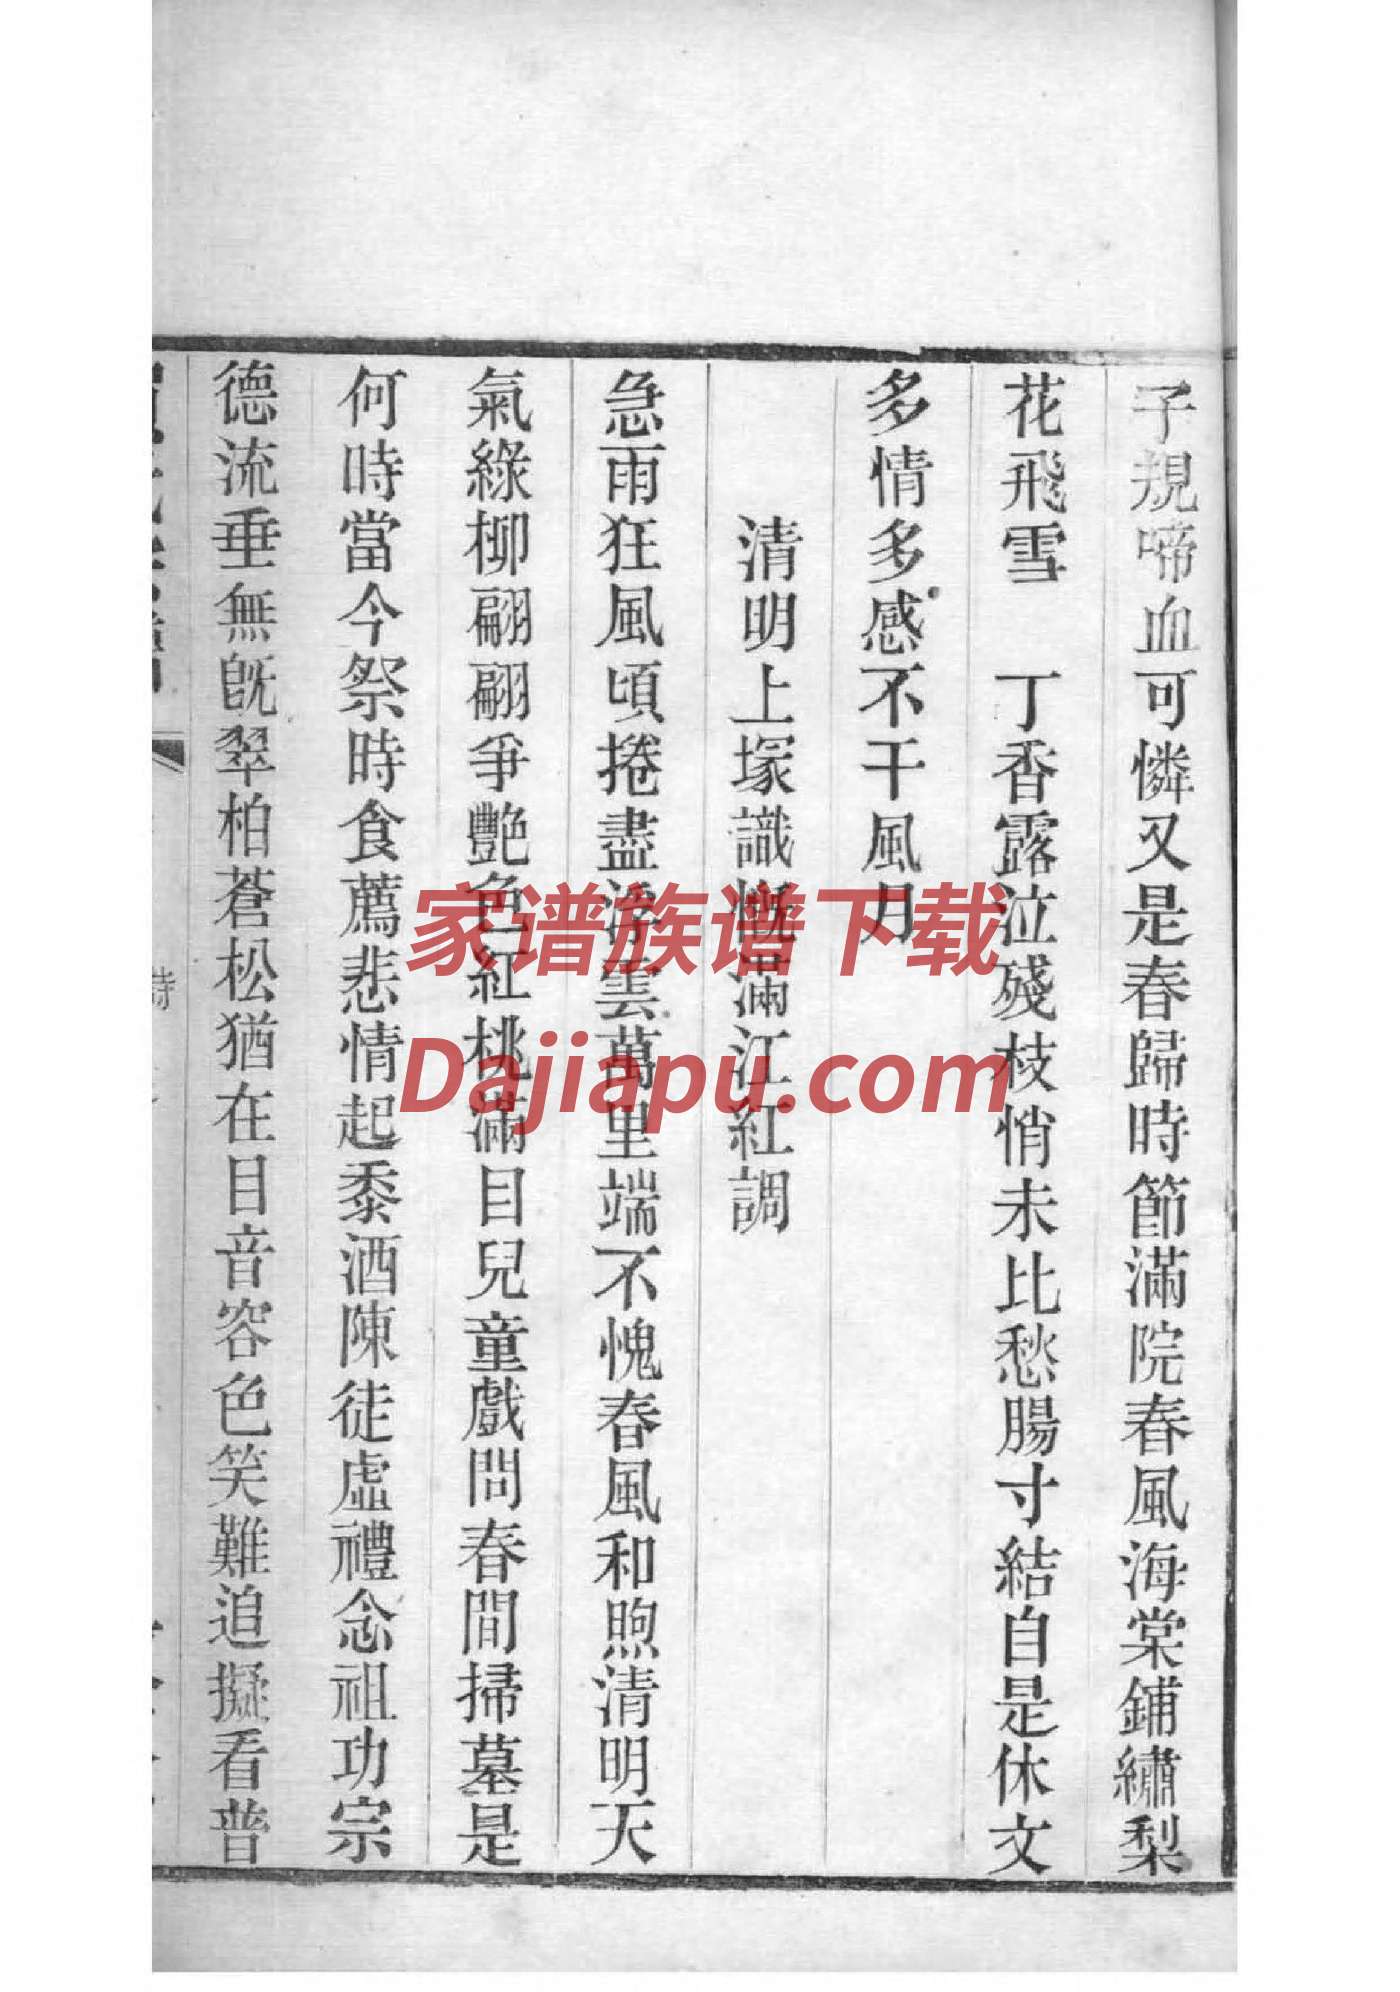 子規啼血可憐又是春歸時節滿院春風海棠鋪繡梨
花飛雪　丁香露泣殘枝悄未比愁腸寸結自是休文
多情多感不干風月
清明上塚識慨滿江紅調
急雨狂風頃捲盡浮雲萬里端不愧春風和煦清明天
氣綠柳翩翩爭艷色紅桃滿目兒童戲問春間掃墓是
何時當今祭時食薦悲情起黍酒陳徒虛禮念祖功宗
德流垂無旣翠柏蒼松猶在目音容色笑難追擬看普
詩
家谱族谱下载
Dajiapu.com